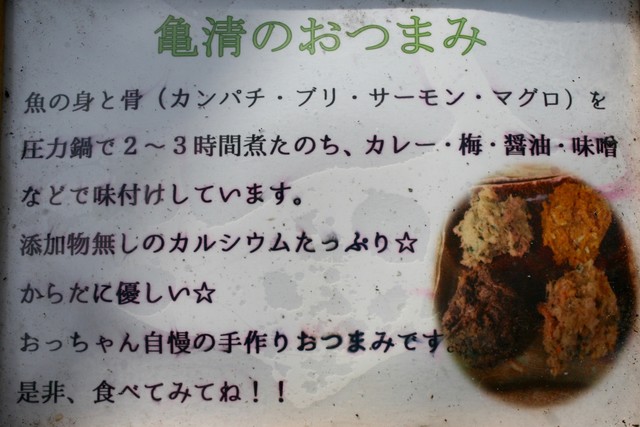 亀清のおつまみ
魚の身と骨（カンパチ・ブリ・サーモン・マグロ）を
圧力鍋で２～３時間煮たのち、カレー・梅・醤油・味噌
などで味付けしています。
添加物無しのカルシウムたっぷり☆
からだに優しい☆
おっちゃん自慢の手作りおつまみです。
是非、食べてみてね！！